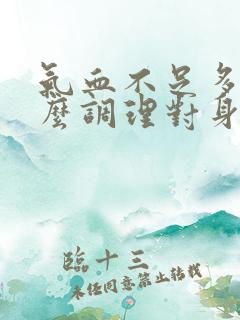 氣血不足多
麼調理對身
臨十三
未經同意禁止轉載